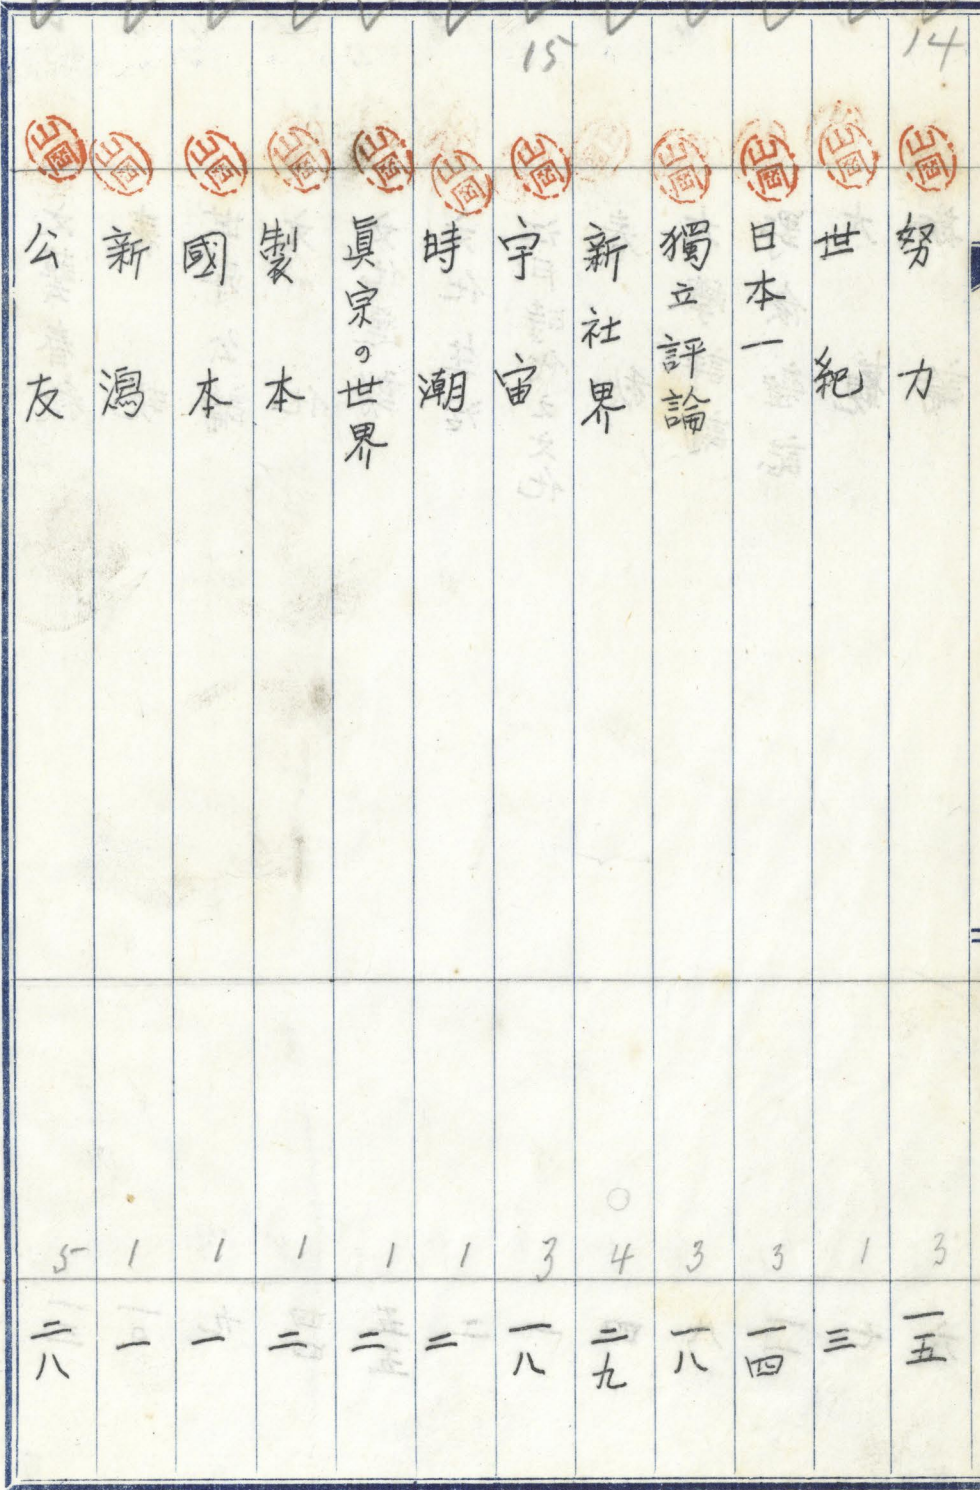 14
山岡
努力
3
一五
山岡
世紀
1
三
山岡
日本一
3
一四
山岡
獨立評論
3
一八
新社界
4
二九
15
山岡
宇宙
3
一八
山岡
時潮
1
二
山岡
眞宗の世界
1
二
山岡
製本
1
二
山岡
國本
1
一
山岡
新潟
1
一
山岡
公友
5
二八